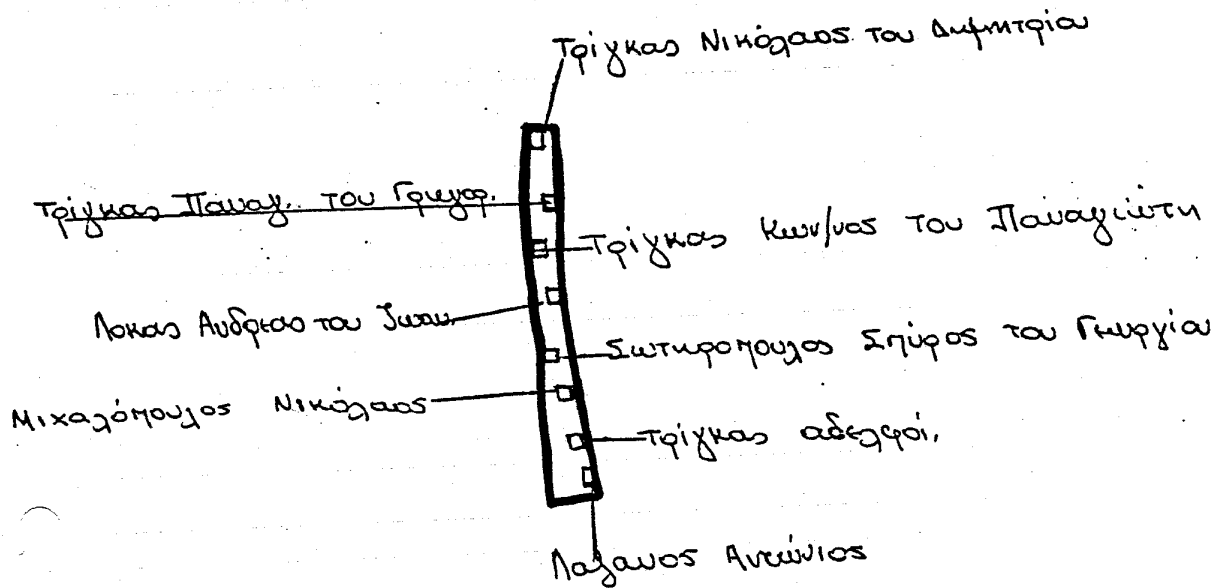 Τρίγκας Νικόλαος του Δημητρίου
Τρίγκας Παναγ. του Γρηγορ.
Τρίγκας Κων/νος του Παναγιώτη
Λοκας Ανδρεας του Ιωαν.
Σωτηροπουλος Σπύρος του Γεωργίου
Μιχαλόπουλος Νικόλαος
Τρίγκας αδελφοί.
Αντώνιος